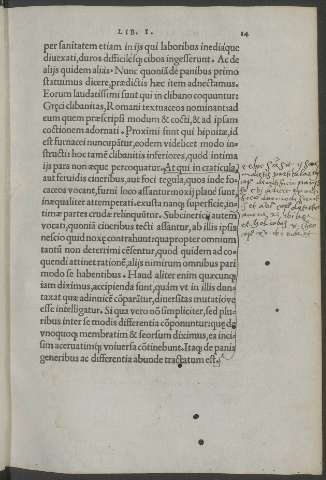 LIB. I. 14
per sanitatem etiam in ijs qui laboribus inediaque
diuexati, duros difficilésq; cibos ingesserunt. Ac de
alijs quidem alias. Nunc quoniã de panibus primo
statuimus dicere, prædictis hæc item adnectamus.
Eorum laudatissimi sunt qui in clibano coquuntur:
Græci clibanitas, Romani textuaceos nominant: ad
eum quem præscripsi modum & cocti, & ad ipsam
coctionem adornati. Proximi sunt qui hipnitæ, id
est furnacei nuncupãtur, eodem videlicet modo in-
structi: hoc tamẽ clibanitis inferiores, quòd intima
ijs pars non æque percoquatur. At qui in craticula,
aut feruidis cineribus, aut foci tegula, quos inde fo-
caceos vocant, furni loco assantur: noxij planè sunt,
inæqualiter attemperati. exusta nanq; superficie, in-
timæ partes crudæ relinquũtur. Subcineritij autem
vocati, quoniã cineribus tecti assantur, ab illis ipsis
nescio quid noxę contrahunt: quapropter omnium
tanti non deterrimi cẽsentur, quod quidem ad co-
quendi attinet rationẽ, alijs nimirum omnibus pari
modo se habentibus. Haud aliter enim quæcunq;
iam diximus, accipienda sunt, quàm vt in illis dun-
taxat quæ adinuicẽ cõparãtur, diuersitas mutatiove
esse intelligatur. Si qua vero nõ simpliciter, sed plu-
ribus inter se modis differentia cõponuntur: quę de
vnoquoq; membratim & seorsum diximus, ea inci-
sim aceruatimq; vniuersa cõtinebunt. Itaq; de panis
generibus ac differentia abunde tractatum est.